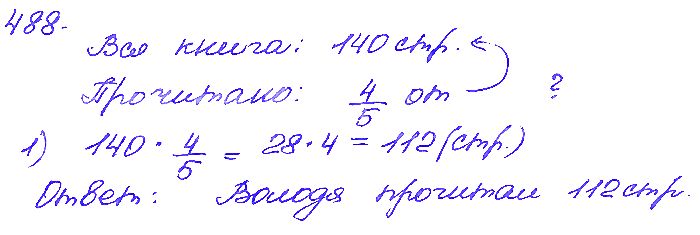 488.
Вся книга: 140 стр.
Прочитано: 4/5 от ?
1) 140 · 4/5 = 28 · 4 = 112 (стр.)
Ответ: Володя прочитал 112 стр.